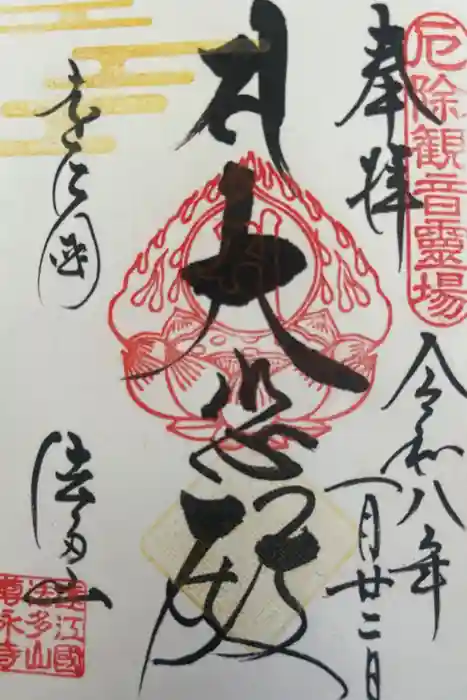 厄除觀音靈場
奉拝
令和八年
一月廿二日
大悲殿
遠江國
法多山
遠江國
法多山
尊永寺